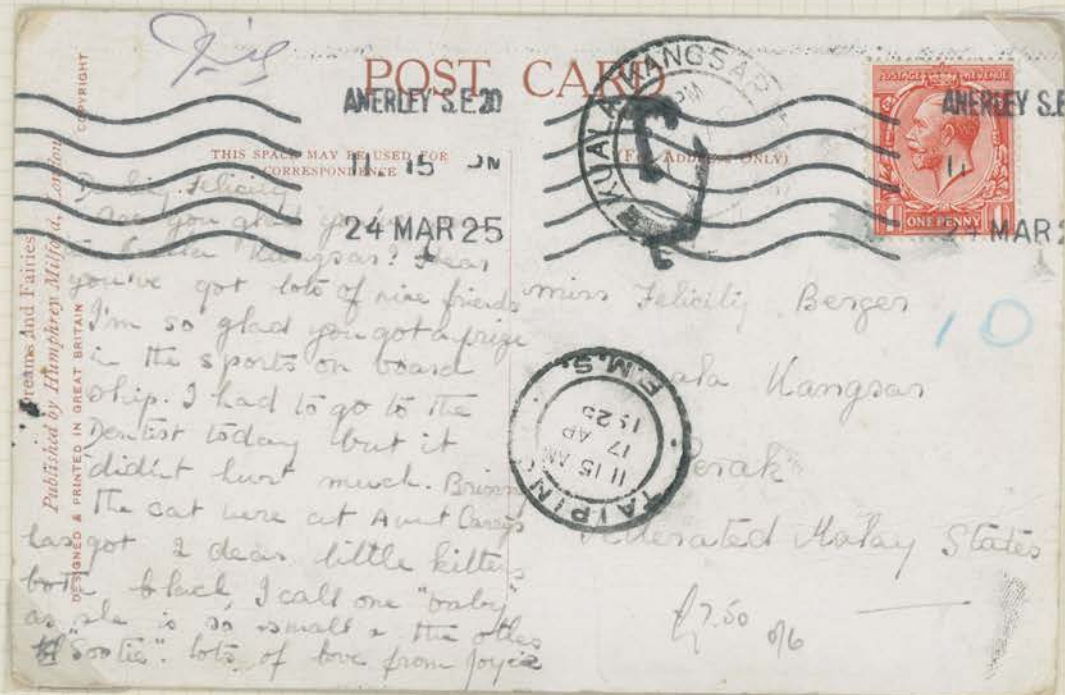 POST CARD
ANERLEY S.E.20
11. 15 PM
24 MAR 25
ANERLEY S.E
11
24 MAR 2
KUALA KANGSAR
PM
POSTAGE REVENUE
ONE PENNY
THIS SPACE MAY BE USED FOR
CORRESPONDENCE
(FOR ADDRESS ONLY)
COPYRIGHT
Dreams and Fairies
Published by Humphrey Milford, London
DESIGNED & PRINTED IN GREAT BRITAIN
Darling Felicity
are you glad you're
in Kuala Kangsar? I hear
you've got lots of nice friends
I'm so glad you got a prize
in the sports on board
ship. I had to go to the
Dentist today but it
didn't hurt much.
The cat here at Aunt
has got 2 dear little kittens
both black, I call one "baby"
as she is so small & the other
"Sootie". lots of love from Joyce
Miss Felicity Berger
Kuala Kangsar
Perak
Federated Malay States
TAIPING
11 15 AM
17 AP
1925
F.M.S.
10
£7.50